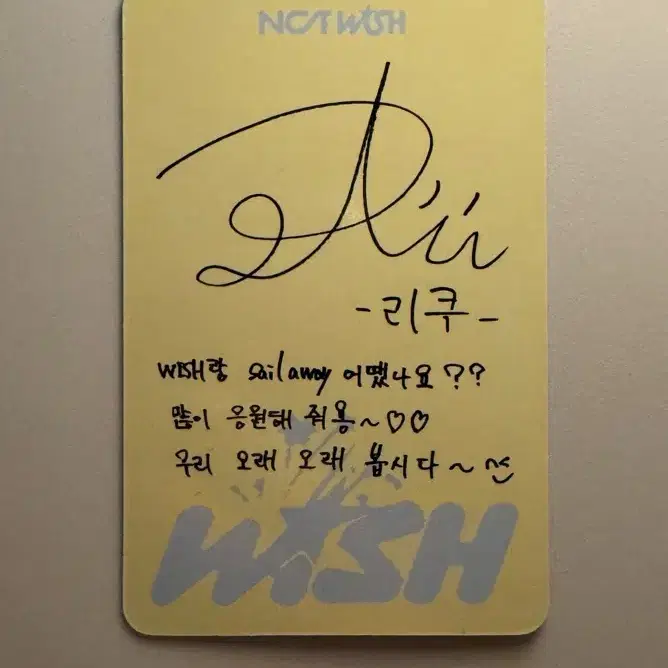 NCT WISH
-리쿠-
WISH랑 Sail away 어땠나요??
많이 응원해 줘용~♡♡
우리 오래 오래 봅시다~
WISH